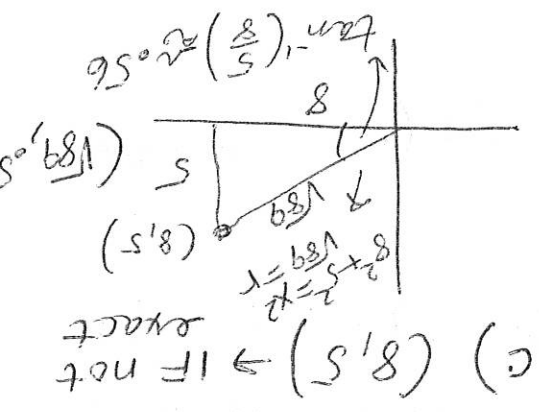 c) (8,5) → IF not
exact
8²+5²=r²
√89=r
(8,5)
r √89
5
(√89, .5
8
tan⁻¹(5/8) ≈ .56